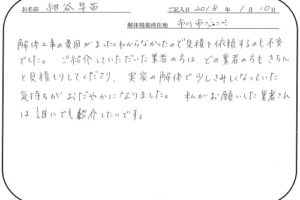 お名前 紺谷早苗 ご記入日 2018年1月10日
解体現場所在地 市川市
解体工事の費用がまったくわからなかったので見積を依頼するのも不安
でした。ご紹介していただいた業者の方は、どの業者の方もきちん
と見積りしてくださり、実家の解体で少しさみしくなっていた
気持ちがおだやかになりました。私がお願いした業者さん
は誰にでも紹介したいです。